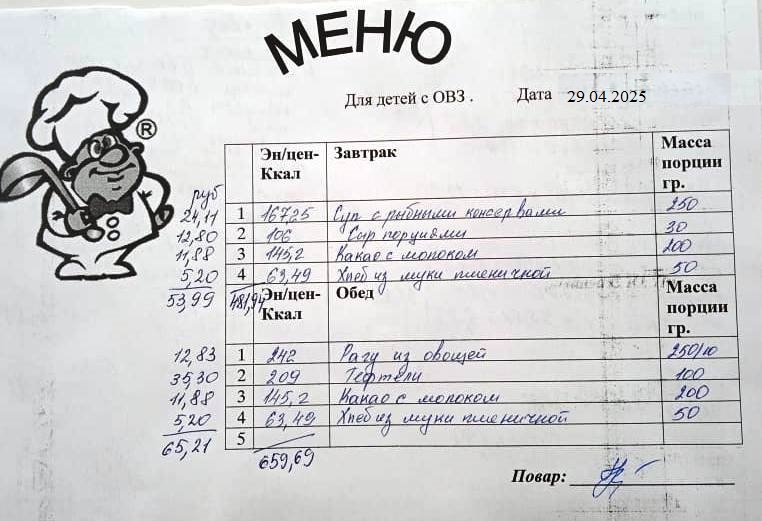 МЕНЮ
Для детей с ОВЗ . Дата 29.04.2025
®
Эн/цен-Ккал Завтрак Масса порции гр.
руб
24,11 1 167,25 Суп с рыбными консервами 250
12,80 2 106 Сыр порциями 30
11,88 3 145,2 Какао с молоком 200
5,20 4 63,49 Хлеб из муки пшеничной 50
53,99 481,94
Эн/цен-Ккал Обед Масса порции гр.
12,83 1 242 Рагу из овощей 250/10
35,30 2 209 Тефтели 100
11,88 3 145,2 Какао с молоком 200
5,20 4 63,49 Хлеб из муки пшеничной 50
65,21 5
659,69
Повар: